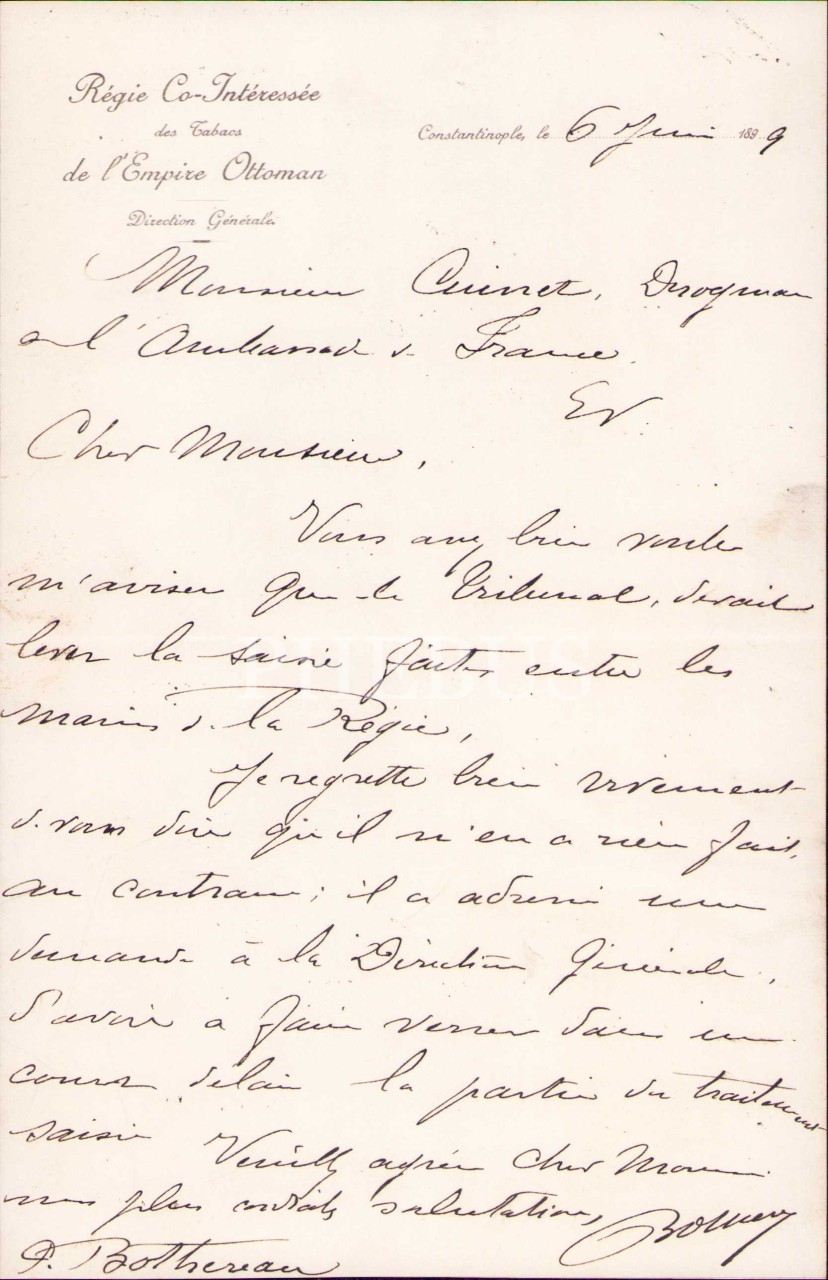 Régie Co-Intéressée
des Tabacs
de l'Empire Ottoman
Direction Générale.
Constantinople, le 6 Juin 1899
Monsieur Cuinet, Drogman
à l'Ambassade de France.
EV.
Cher Monsieur,
Vous avez bien voulu
m'aviser que le Tribunal, devait
lever la saisie faite entre les
mains de la Régie,
Je regrette bien vivement
de vous dire qu'il n'en a rien fait,
au contraire; il a adressé une
demande à la Direction Générale,
d'avoir à faire verser dans un
court délai la partie du traitement
saisie Veuillez agréer cher Monsieur
mes plus cordiales salutations,
P. Bothereau